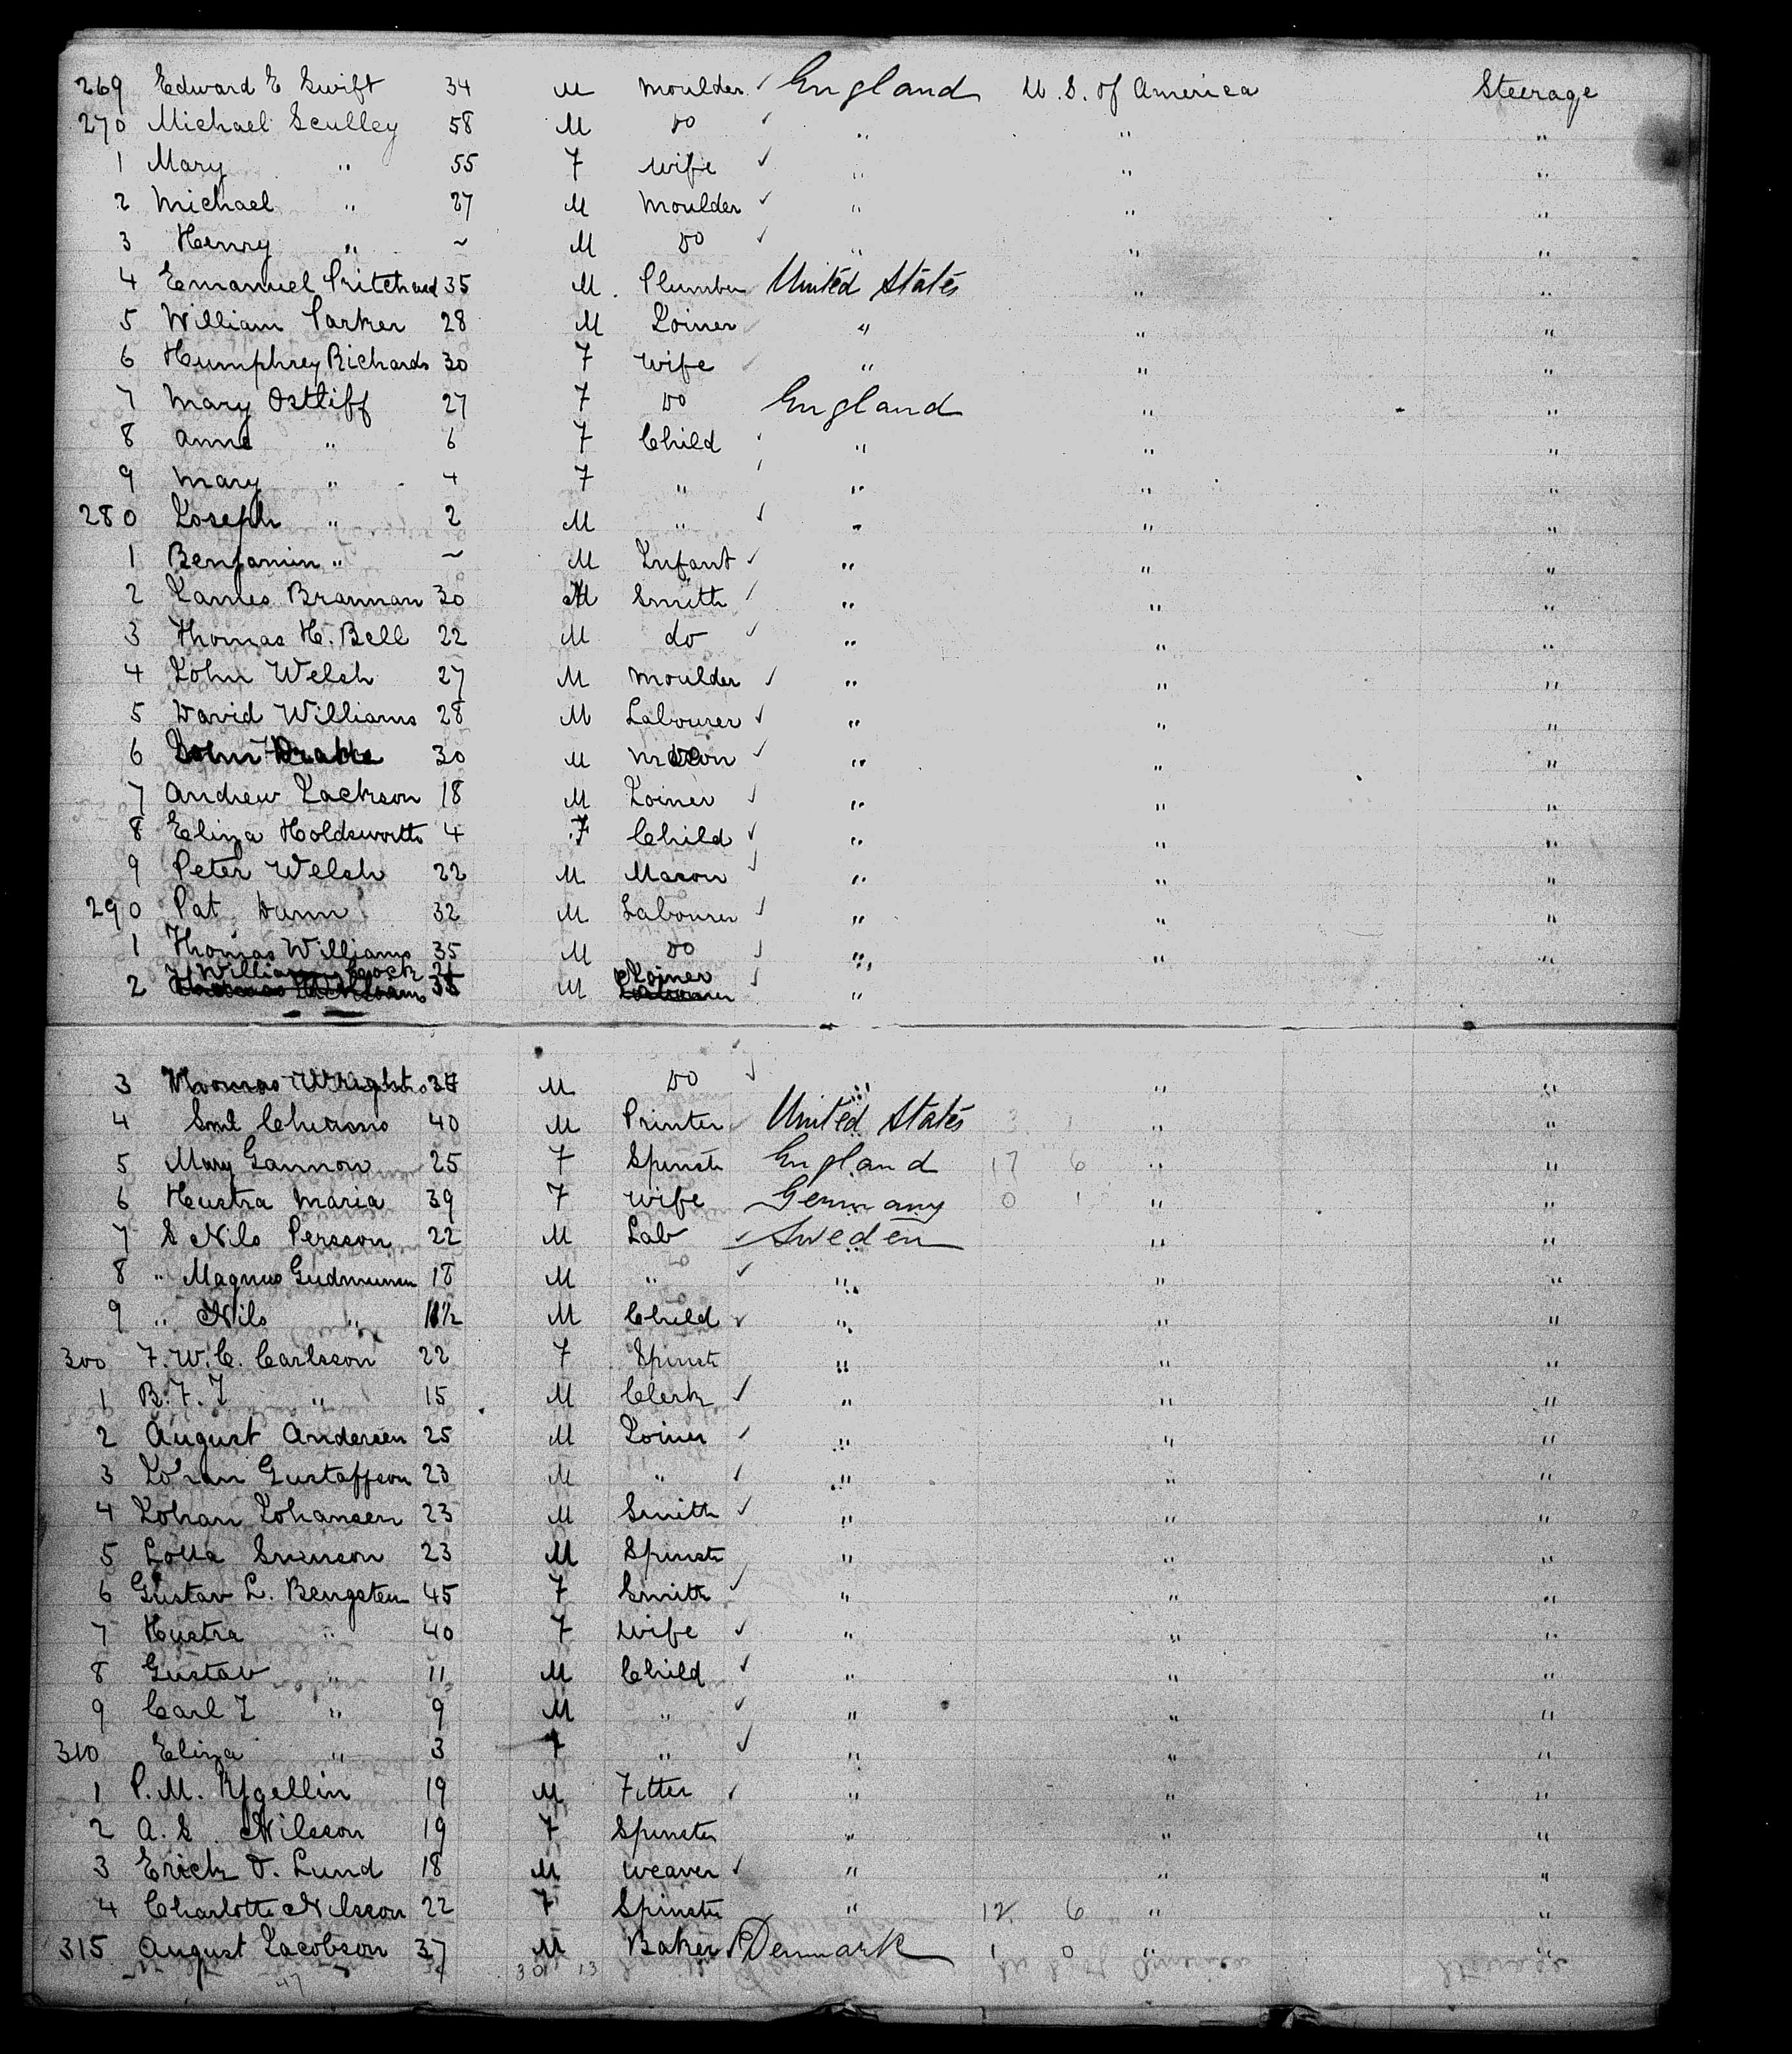 269 Edward E Swift 34 M Moulder England U. S. of America Steerage
270 Michael Sculley 58 M Do " " "
1 Mary " 55 F Wife " " "
2 Michael " 27 M Moulder " " "
3 Henry " ~ M Do " " "
4 Emanuel Pritchard 35 M. Plumber United States " "
5 William Parker 28 M Joiner " " "
6 Humphrey Richards 30 F Wife " " "
7 Mary Ostliff 27 F Do England " "
8 Anne " 6 F Child " " "
9 Mary " 4 F " " " "
280 Joseph " 2 M " " " "
1 Benjamin " ~ M Infant " " "
2 James Brannan 30 M Smith " " "
3 Thomas H. Bell 22 M do " " "
4 John Welsh 27 M Moulder " " "
5 David Williams 28 M Labourer " " "
6 John 30 M " " "
7 Andrew Jackson 18 M Joiner " " "
8 Eliza Holdsworth 4 F Child " " "
9 Peter Welsh 22 M Mason " " "
290 Pat Dunn 32 M Labourer " " "
1 Thomas Williams 35 M Do " " "
2 William M Joiner "
3 Thomas Wright M Do " " "
4 Saml 40 M Printer United States 3 1 " "
5 Mary Gannon 25 F Spinstr England 17 6 " "
6 Hustra Maria 39 F Wife Germany 0 1 " "
7 S Nils Persson 22 M Lab Sweden " "
8 " Magnus Gudmunn 18 M " " " "
9 " Nils " 11½ M Child " " "
300 F. W. C. Carlsson 22 F Spinstr " " "
1 B. F. J " 15 M Clerk " " "
2 August Andersen 25 M Joiner " " "
3 Johan Gustaffson 23 M " " " "
4 Johan Johansen 23 M Smith " " "
5 Lotta Svenson 23 M Spinstr " " "
6 Gustav L. Bengsten 45 F Smith " " "
7 Hustra " 40 F Wife " " "
8 Gustav " 11 M Child " " "
9 Carl J " 9 M " " " "
310 Eliza " 3 F " " " "
1 P. M. 19 M Fitter " " "
2 A. S. Nilsson 19 F Spinster " " "
3 Erick O. Lund 18 M Weaver " " "
4 Charlotte Nilsson 22 F Spinster " 12 6 " "
315 August Jacobson 37 M Baker Denmark 1 0 " "
47 301 13